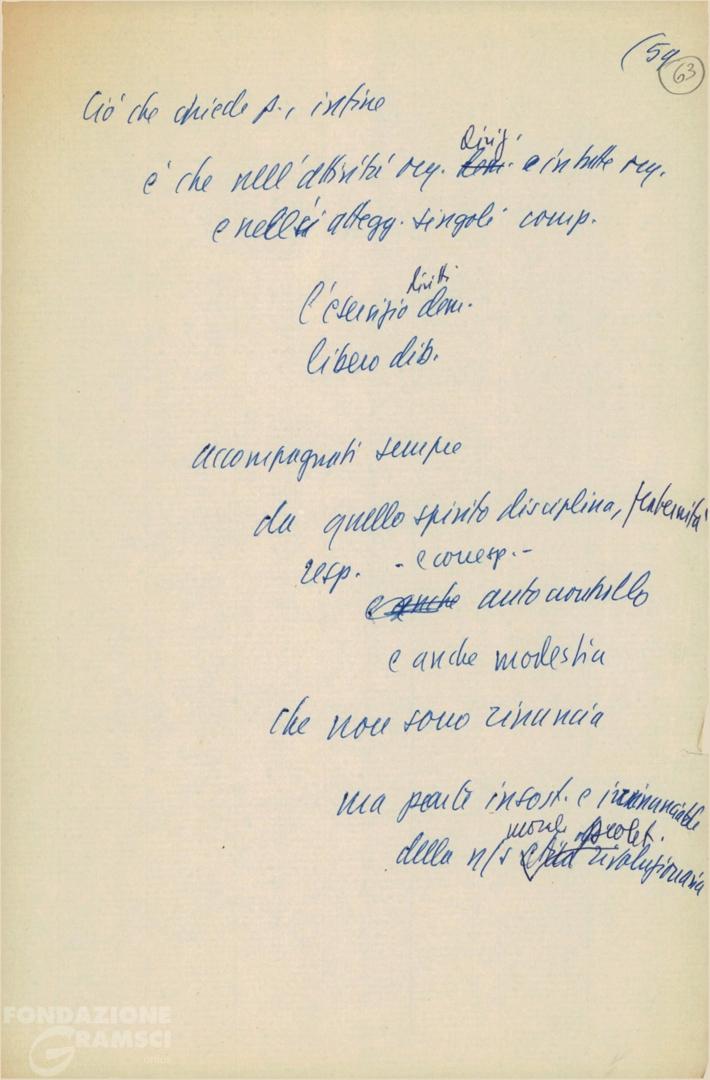 (59
63
Ciò che chiede p., infine
Dirig.
è che nell'attività org. e in tutte org.
e nell' attegg. singoli comp.
diritti
l'esercizio dem.
libero dib.
accompagnati sempre
da quello spirito disciplina, fraternità
resp. - e corresp. -
e anche autocontrollo
e anche modestia
che non sono rinuncia
ma parte insost. e irrinunciabile
morale prolet.
della n/s rivoluzionaria
FONDAZIONE
GRAMSCI
onlus